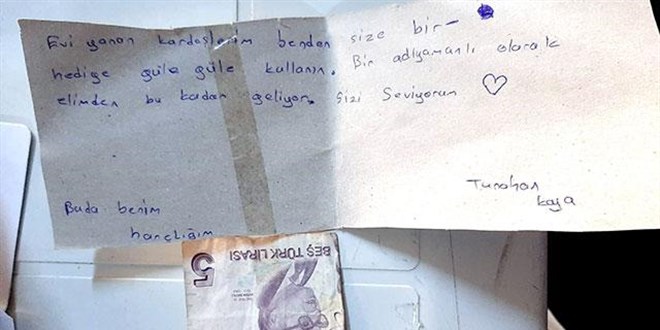 Evi yanan kardeşlerim benden size bir
hediye güle güle kullanın. Bir adıyamanlı olarak
elimden bu kadar geliyor. Sizi Seviyorum
Tunahan
kaya
Buda benim
harçlığım
BEŞ TÜRK LİRASI
5